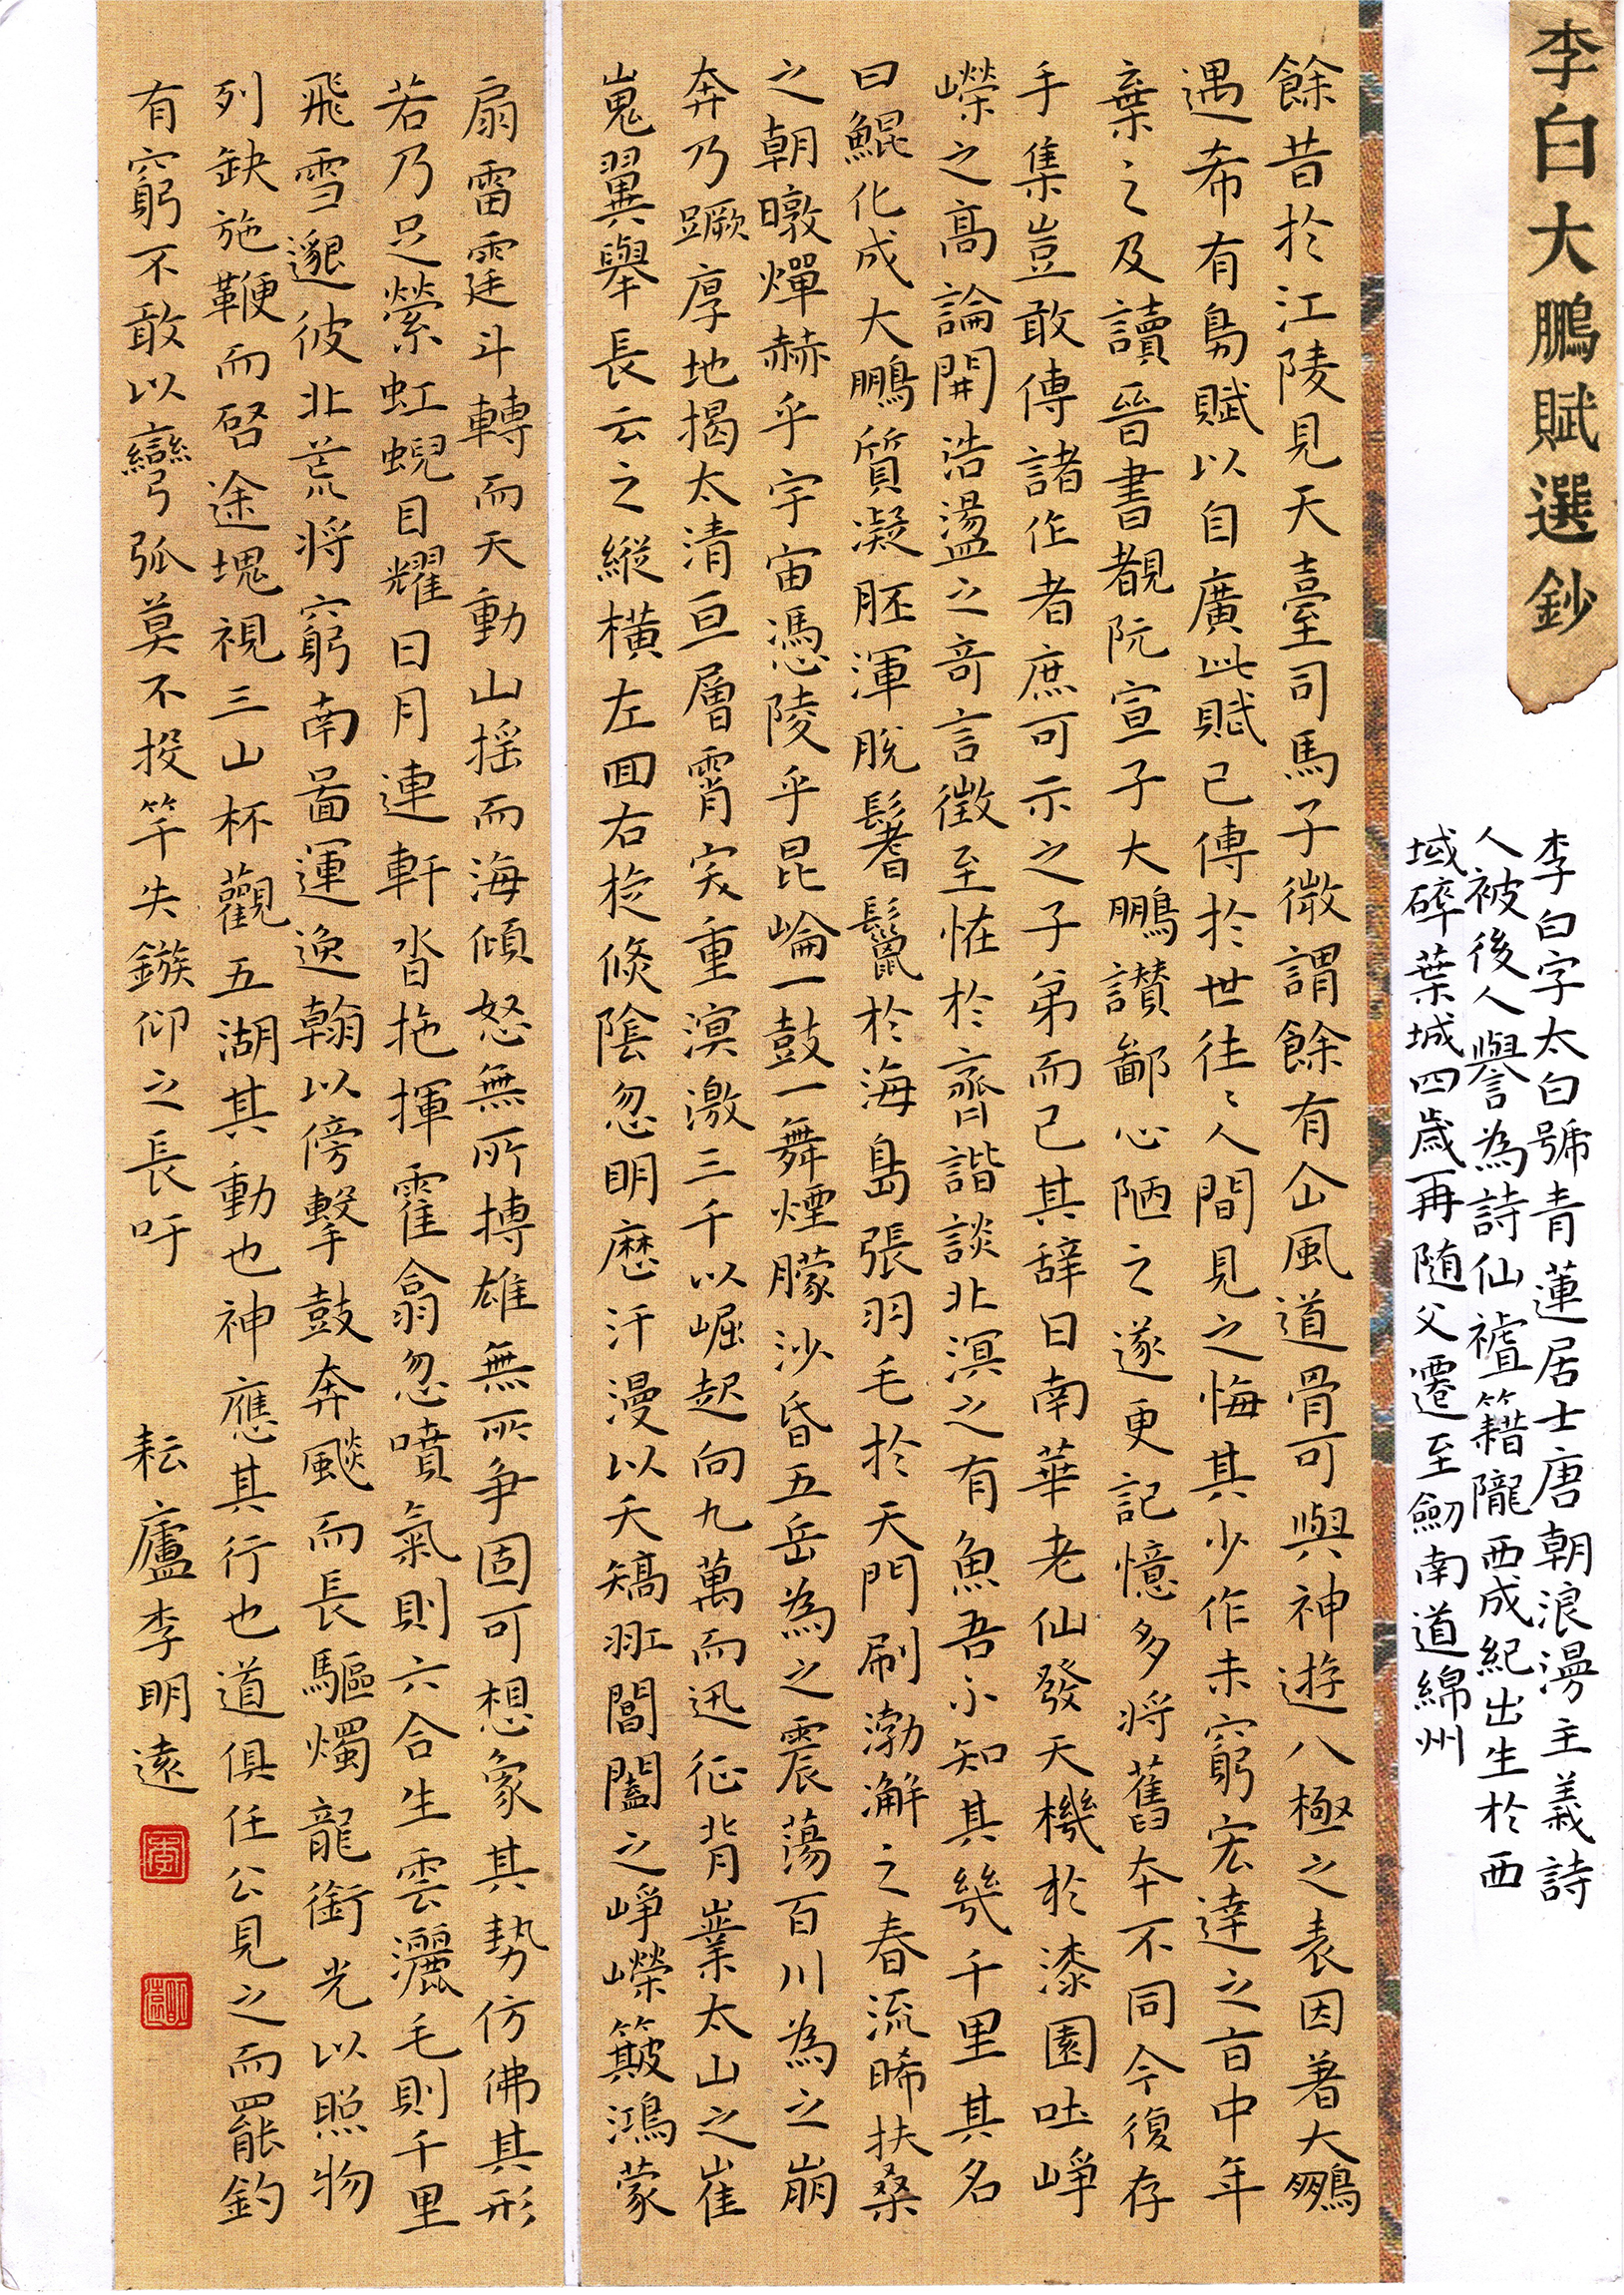 李白大鵬賦選鈔
李白字太白號青蓮居士唐朝浪漫主義詩
人被後人譽為詩仙祖籍隴西成紀出生於西
域碎葉城四歲再随父遷至劍南道綿州
餘昔於江陵見天臺司馬子微謂餘有仚風道骨可與神遊八極之表因著大鵬
遇希有鳥賦以自廣此賦已傳於世往〻人間見之悔其少作未窮宏達之旨中年
棄之及讀晉書覩阮宣子大鵬讃鄙心陋之遂更記憶多將舊本不同今復存
手集豈敢傳諸作者庶可示之子弟而已其辞曰南華老仙發天機於漆園吐崢
嶸之高論開浩盪之奇言徵至恠於齊諧談北溟之有魚吾不知其幾千里其名
曰鯤化成大鵬質凝胚渾脫鬐鬣於海島張羽毛於天門刷渤澥之春流晞扶桑
之朝暾燀赫乎宇宙憑陵乎昆崘一鼓一舞煙朦沙昏五岳為之震蕩百川為之崩
奔乃蹶厚地揭太清亘層霄突重溟激三千以崛起向九萬而迅征背嶪太山之崔
嵬翼舉長云之縱橫左囬右旋倐陰忽明歷汗漫以夭矯羾閶闔之崢嶸簸鴻蒙
扇雷霆斗轉而天動山搖而海傾怒無所搏雄無所争固可想象其勢仿佛其形
若乃足縈虹蜺目耀日月連軒沓拖揮霍翕忽噴氣則六合生雲灑毛則千里
飛雪邈彼北荒將窮南啚運逸翰以傍擊鼓奔飈而長驅燭龍銜光以照物
列缺施鞭而啓途塊視三山杯觀五湖其動也神應其行也道俱任公見之而罷釣
有窮不敢以彎弧莫不投竿失鏃仰之長吁
耘廬李明遠